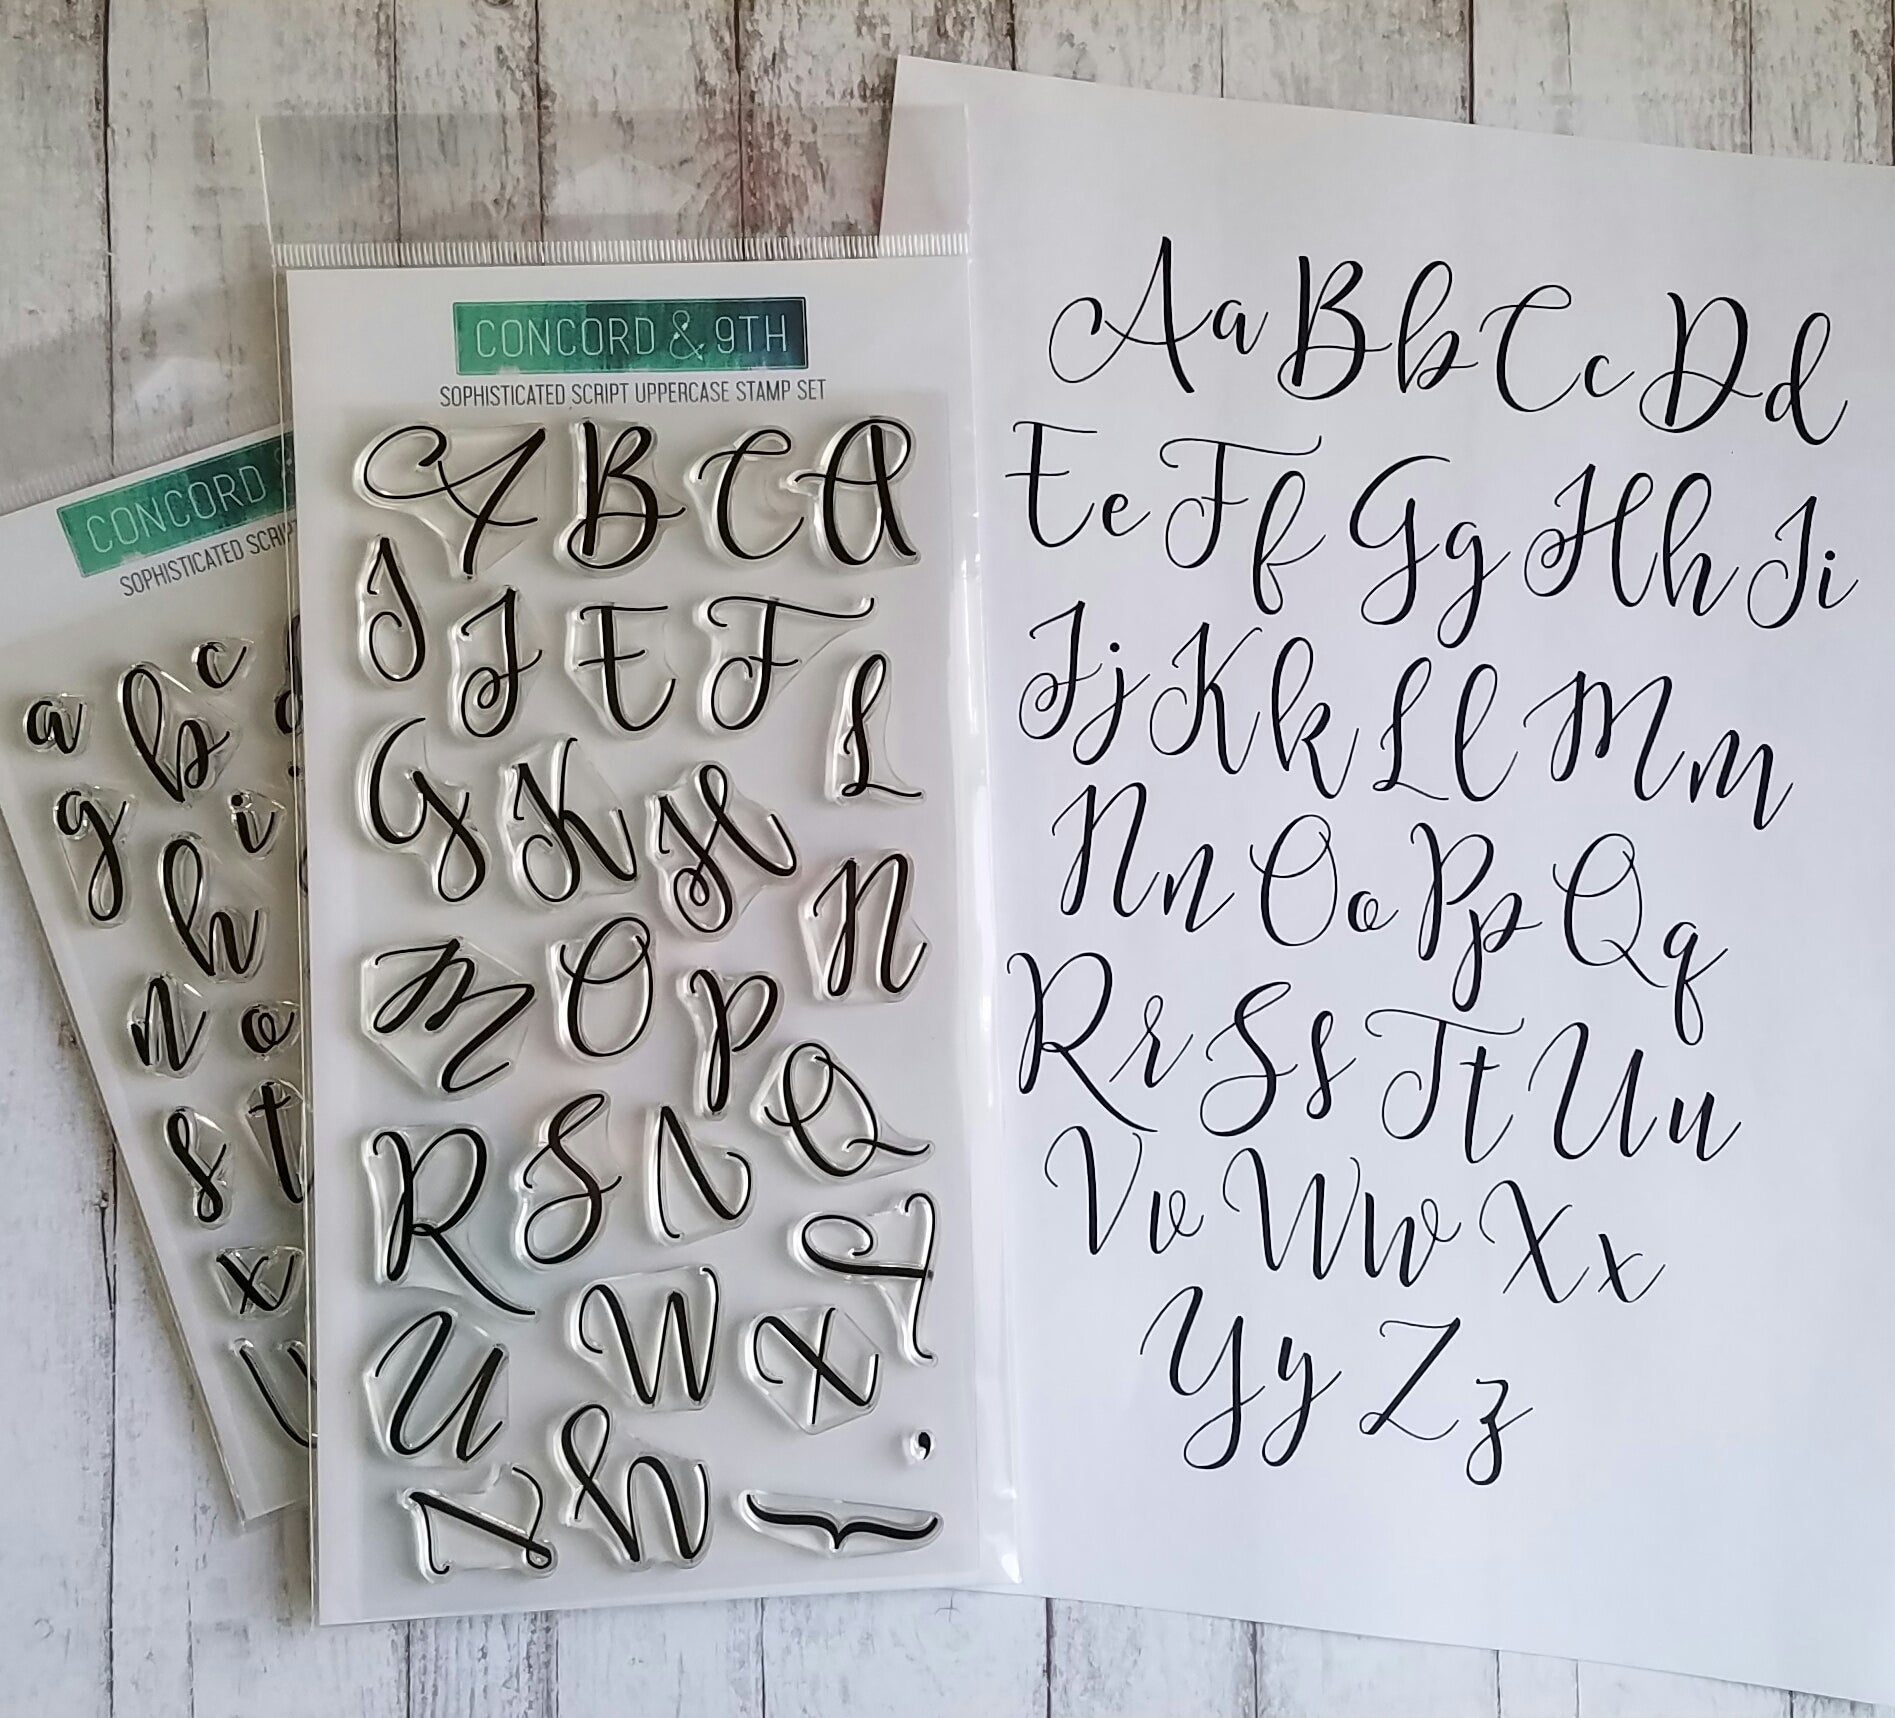 CONCORD & 9TH
SOPHISTICATED SCRIPT UPPERCASE STAMP SET
A B C D
I J E F
L
G K H
N
M O P
Q
R S V
T
U W X
,
Z Y }
CONCORD
SOPHISTICATED
a b c
g h i
n o
s t
x
Aa Bb Cc Dd
Ee Ff Gg Hh Ii
Jj Kk Ll Mm
Nn Oo Pp Qq
Rr Ss Tt Uu
Vv Ww Xx
Yy Zz